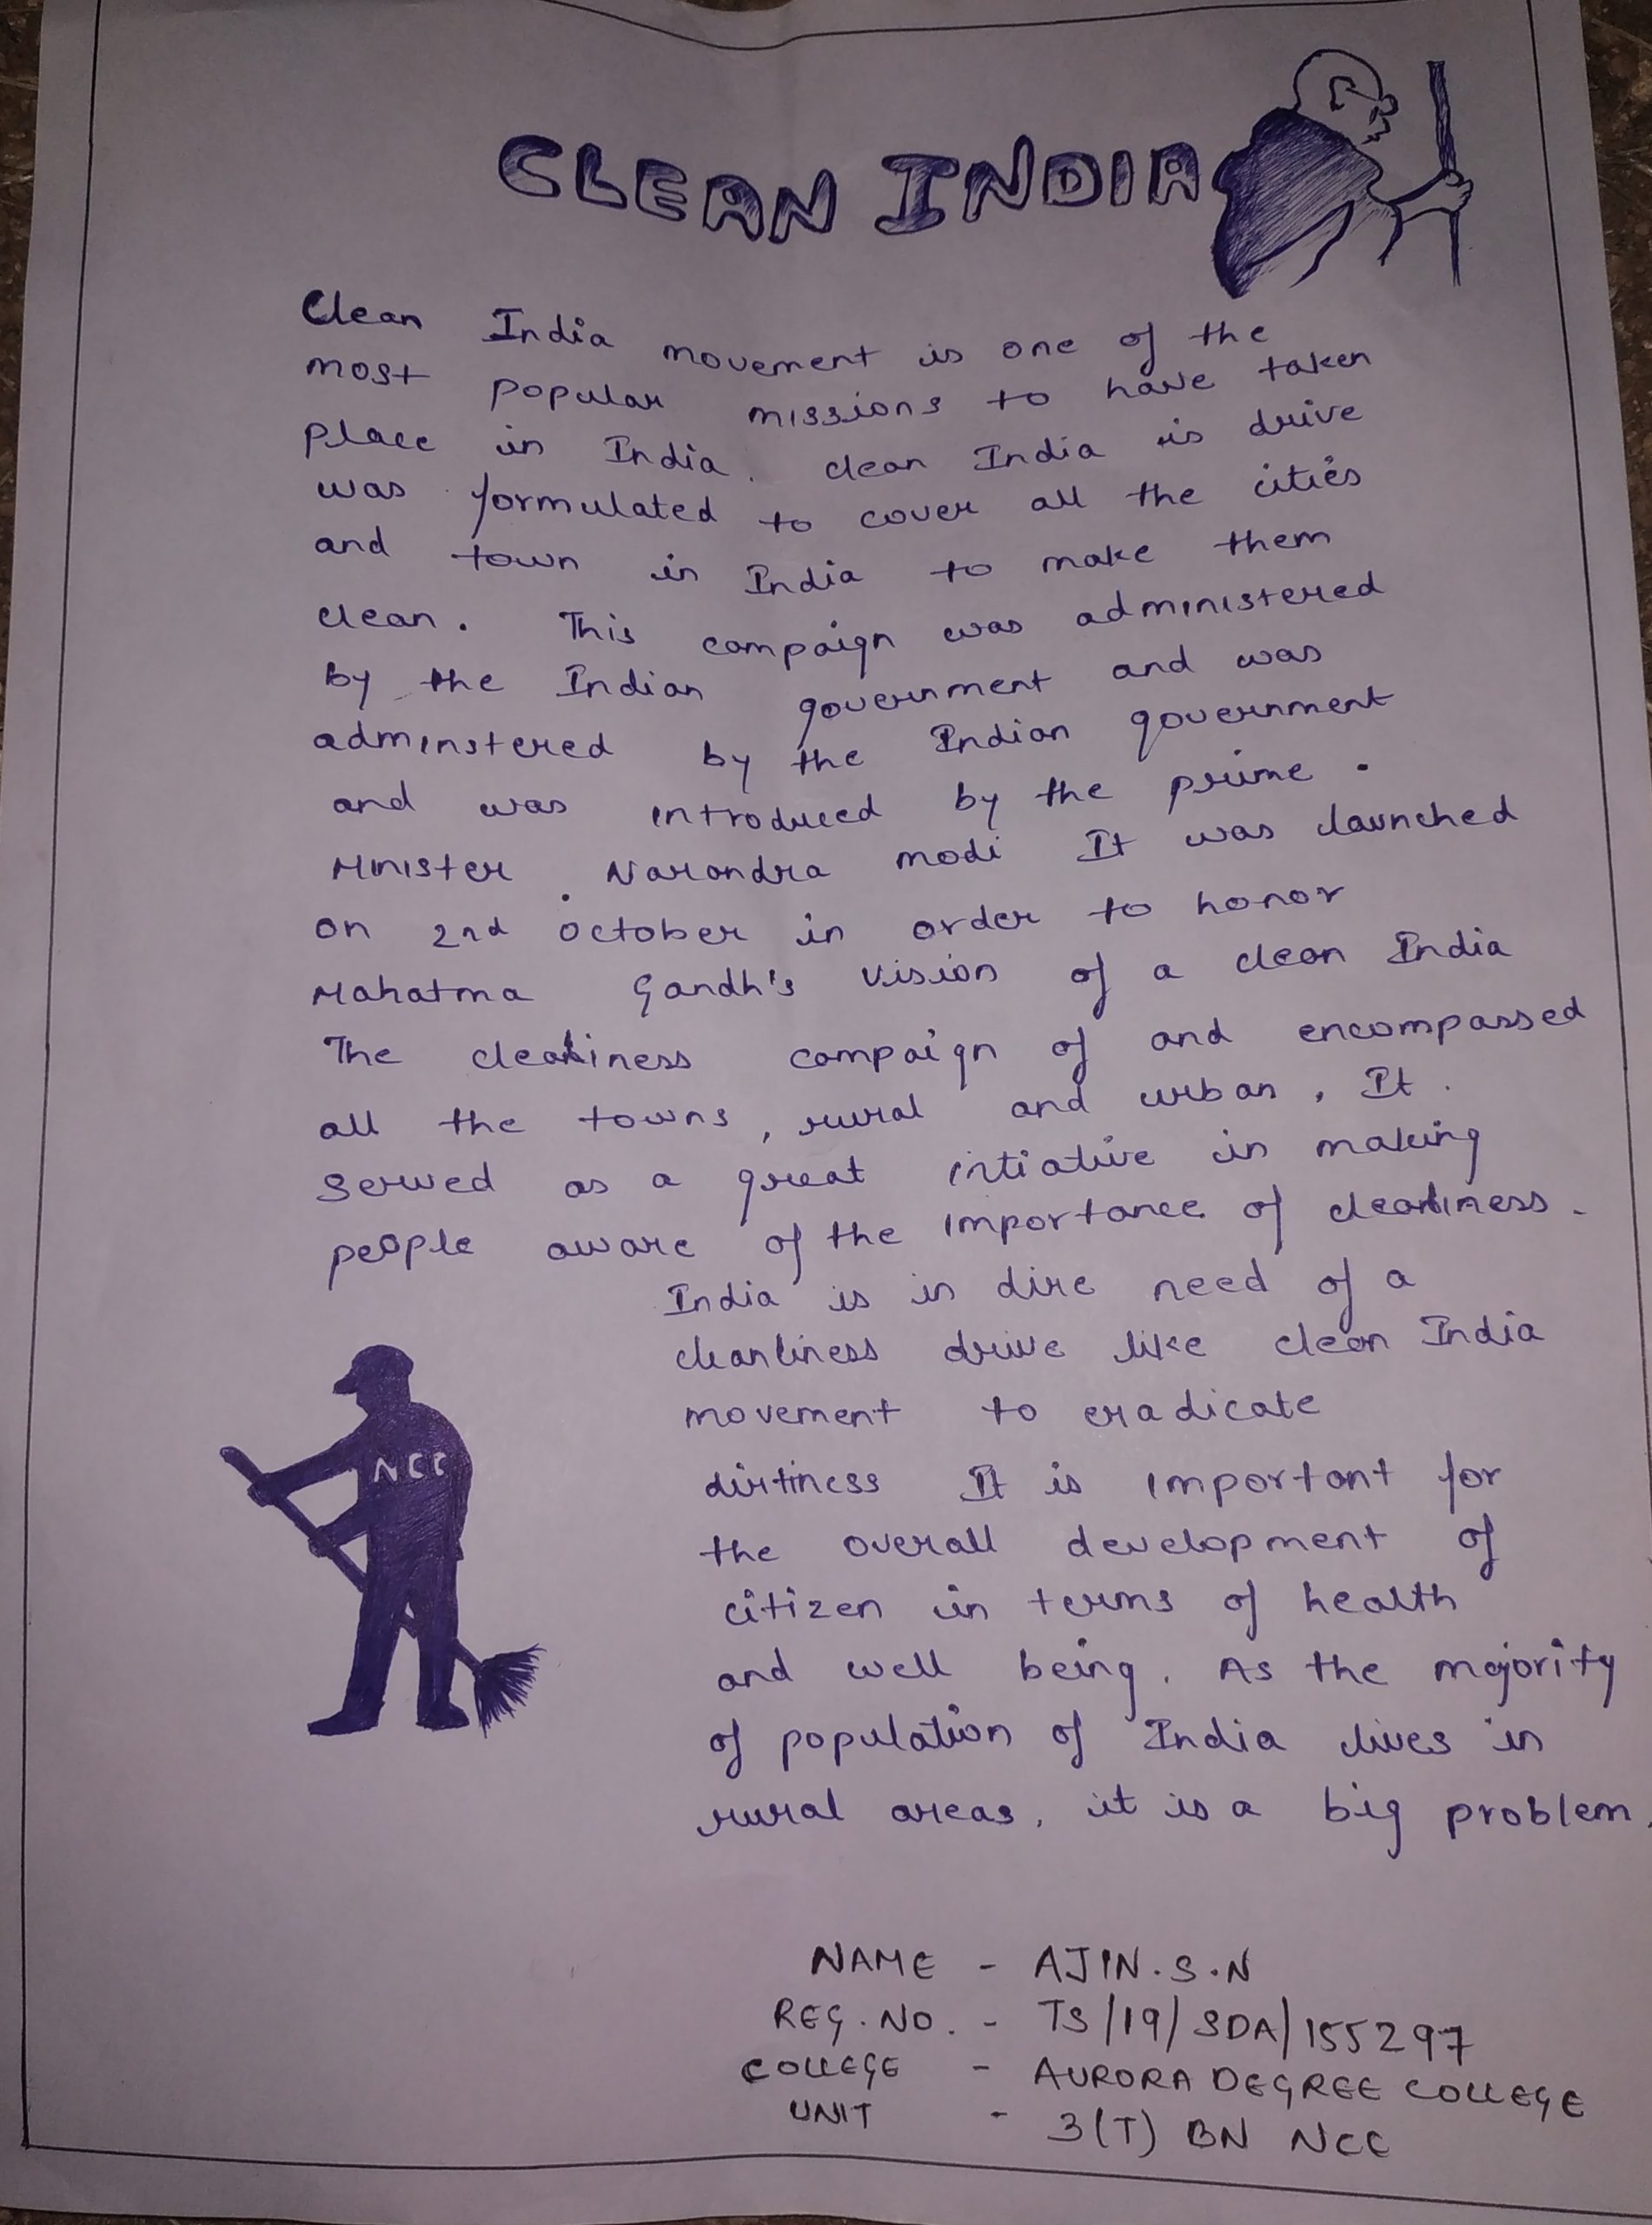 CLEAN INDIA
Clean India movement is one of the
most popular missions to have taken
place in India. clean India is drive
was formulated to cover all the cities
and town in India to make them
clean. This campaign was administered
by the Indian government and was
adminstered by the Indian government
and was introduced by the prime.
Minister Narondra modi It was launched
on 2nd october in order to honor
Mahatma Gandh's vision of a clean India
The cleanliness campaign of and encompassed
all the towns, rural and urban, It.
served as a great intiative in making
people aware of the importance of cleanliness.
India is in dire need of a
cleanliness drive like clean India
movement to eradicate
dirtiness It is important for
the overall development of
citizen in terms of health
and well being. As the majority
of population of India lives in
rural areas, it is a big problem.
NCC
NAME - AJIN.S.N
REG.NO. - TS/19/SDA/155297
COLLEGE - AURORA DEGREE COLLEGE
UNIT - 3(T) BN NCC